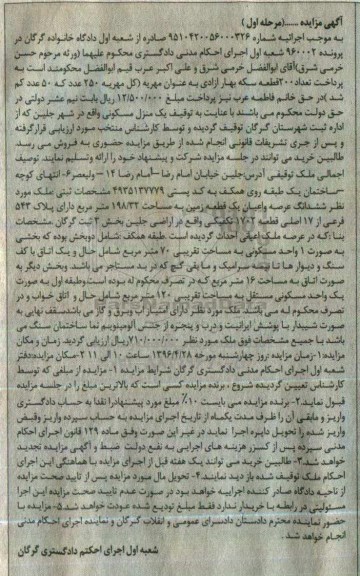 آگهی مزایده .....(مرحله اول )
به موجب اجرائیه شماره ۹۵۱۰۴۲۰۰۵۶۰۰۰۳۲۶ صادره از شعبه اول دادگاه خانواده گرگان در
پرونده ۹۶۰۰۰۲ شعبه اول اجرای احکام مدنی دادگستری محکوم علیهما (ورثه مرحوم حسن
خرمی شرق)آقای ابوالفضل خرمی شرق و علی اکبر عرب قیم ابوالفضل محکومند است به
پرداخت تعداد۲۰۰قطعه سکه بهار آزادی به عنوان مهریه (کل مهریه ۲۵۰ عدد که ۵۰ عدد کم
شد )در حق خانم فاطمه عرب نیز پرداخت مبلغ ۱۲/۵۰۰/۰۰۰ ریال بابت نیم عشر دولتی در
حق دولت محکوم می باشند با عنایت به توقیف یک منزل مسکونی واقع در شهر جلین که از
اداره ثبت شهرستان گرگان توقیف گردیده و توسط کارشناس منتخب مورد ارزیابی قرارگرفته
و پس از جری تشریفات قانونی انجام شده از طریق مزایده حضوری به فروش می رسد
طالبین خرید می توانند در جلسه مزایده شرکت و پیشنهاد خود را ارائه وتسلیم نمایند. توصیف
اجمالی ملک توقیفی آدرس:جلین خیابان امام رضا –امام رضا ۱۴ –ولیعصر۶- انتهای کوچه
–ساختمان یک طبقه روی همکف به کد پستی ۴۹۳۵۱۳۷۷۷۹ مشخصات ثبتی :ملک مورد
نظر ششدانگ عرصه واعیان یک قطعه زمین به مساحت ۱۹۸/۳۲ متر مربع دارای پلاک ۵۴۳
فرعی از ۱۷ اصلی قطعه ۱۷۰۲ تفکیکی واقع در اراضی جلین بخش ۳ ثبت گرگان .مشخصات
بنا :که در عرصه ملک اعیانی احداث گردیده است .طبقه همکف :شامل دوبخش بوده که بخشی
به صورت ۱ واحد مسکونی به مساحت تقریبی ۷۰ متر مربع شامل حال و یک اتاق با کف
سنگ و دیوار ها تا نیمه سرامیک و مابقی گچ که در ید مستاجر می باشد .وبخش دیگر به
صورت اتاق به مساحت ۱۶ متر مربع که در تصرف محکوم له بوده است.وطبقه اول به صورت
یک واحد مسکونی مستقل به مساحت تقریبی ۱۲۰ متر مربع شامل حال و اتاق خواب و در
تصرف محکوم له می باشد.ملک مورد نظر دارای امتیاز آب وبرق و گاز می باشدسقف نهایی به
صورت شیبدار با پوشش ایرانیت و درب و پنجره از جنس آلومینیوم نما ساختمان سنگ می
باشد با جمیع مشخصات فوق ملک مورد نظر ۷۱۰/۰۰۰/۰۰۰ریال ارزیابی گردید. زمان و مکان
مزایده:۱-زمان مزایده :روز چهارشنبه مورخه ۱۳۹۶/۴/۲۸ ساعت ۱۰ الی ۱۱ ۲-مکان مزایده:دفتر
شعبه اول اجرای احکام مدنی دادگستری گرگان شرایط مزایده ۱- مزایده از مبلغی که توسط
کارشناس تعیین گردیده شروع ،برنده مزایده کسی است که بالاترین مبلغ را در جلسه مزایده
قبول نماید.۲- برنده مزایده می بایست ۱۰٪ مبلغ مورد پیشنهادرا نقدا به حساب دادگستری
واریز و مابقی آن را ظرف مدت یکماه از تاریخ اجرای مزایده به حساب سپرده واریز وقبض
واریز شده را تحویل دایره اجرا نماید در غیر این صورت وفق ماده ۱۲۹ قانون اجرای احکام
مدنی سپرده پس از کسر هزینه های اجرایی به نفع دولت ضبط و آگهی مزایده تجدید
خواهد شد.۳- طالبین خرید می توانند یک هفته قبل از اجرای مزایده با هماهنگی این اجرای
احکام ملک توقیف شده باز دید نمایند.۴- تحویل مال مورد مزایده پس از تایید صحت مزایده
از ناحیه دادگاه صادر کننده اجراییه خواهد بود در صورت عدم تایید صحت مزایده این اجرا
مسئولیتی در رابطه با خریدار ندارد فقط مبلغ تودیع شده عودت خواهد شد.۵- مزایده با
حضور نماینده محترم دادستان دادسرای عمومی و انقلاب گرگان و نماینده اجرای احکام مدنی
انجام خواهد شد .
شعبه اول اجرای احکام دادگستری گرگان